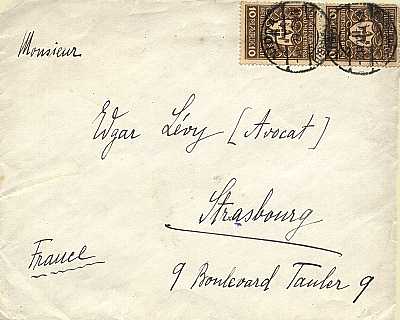 Monsieur
Edgar Lévy [Avocat]
Strasbourg
France
9 Boulevard Tauler 9